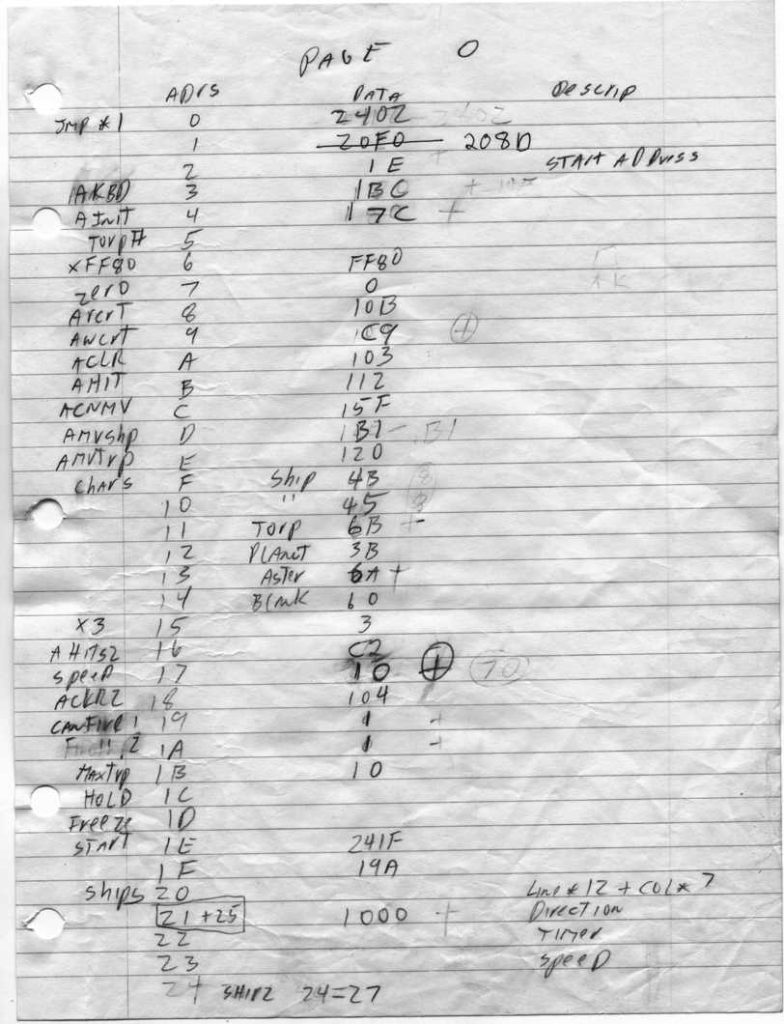 PAGE 0
ADrS DATA Descrip
JMP *1 0 2402 2402
1 20F0 208D
2 1E START ADDress
IAKBD 3 1BC +
AInit 4 17C +
Torp# 5
xFF80 6 FF80
zero 7 0
Arcrt 8 10B
Awcrt 9 1C9 +
ACLR A 103
AHIT B 112
ACNMV C 15F
AMVshp D 1B1 - 1B1
AMVTrp E 120
Chars F Ship 4B
10 " 45
11 Torp 6B +
12 PLAnet 3B
13 Aster 6A +
14 Blank 60
X3 15 3
AHITS2 16 C2
speed 17 10 + 70
ACKR2 18 104
CANFIRE 1 19 1 +
" 2 1A 1 +
MaxTrp 1B 10
HOLD 1C
Freeze 1D
START 1E 241F
1F 19A
Ships 20 Line * 12 + COL * ?
21 +25 1000 + Direction
22 Timer
23 speed
24 SHIP2 24=27